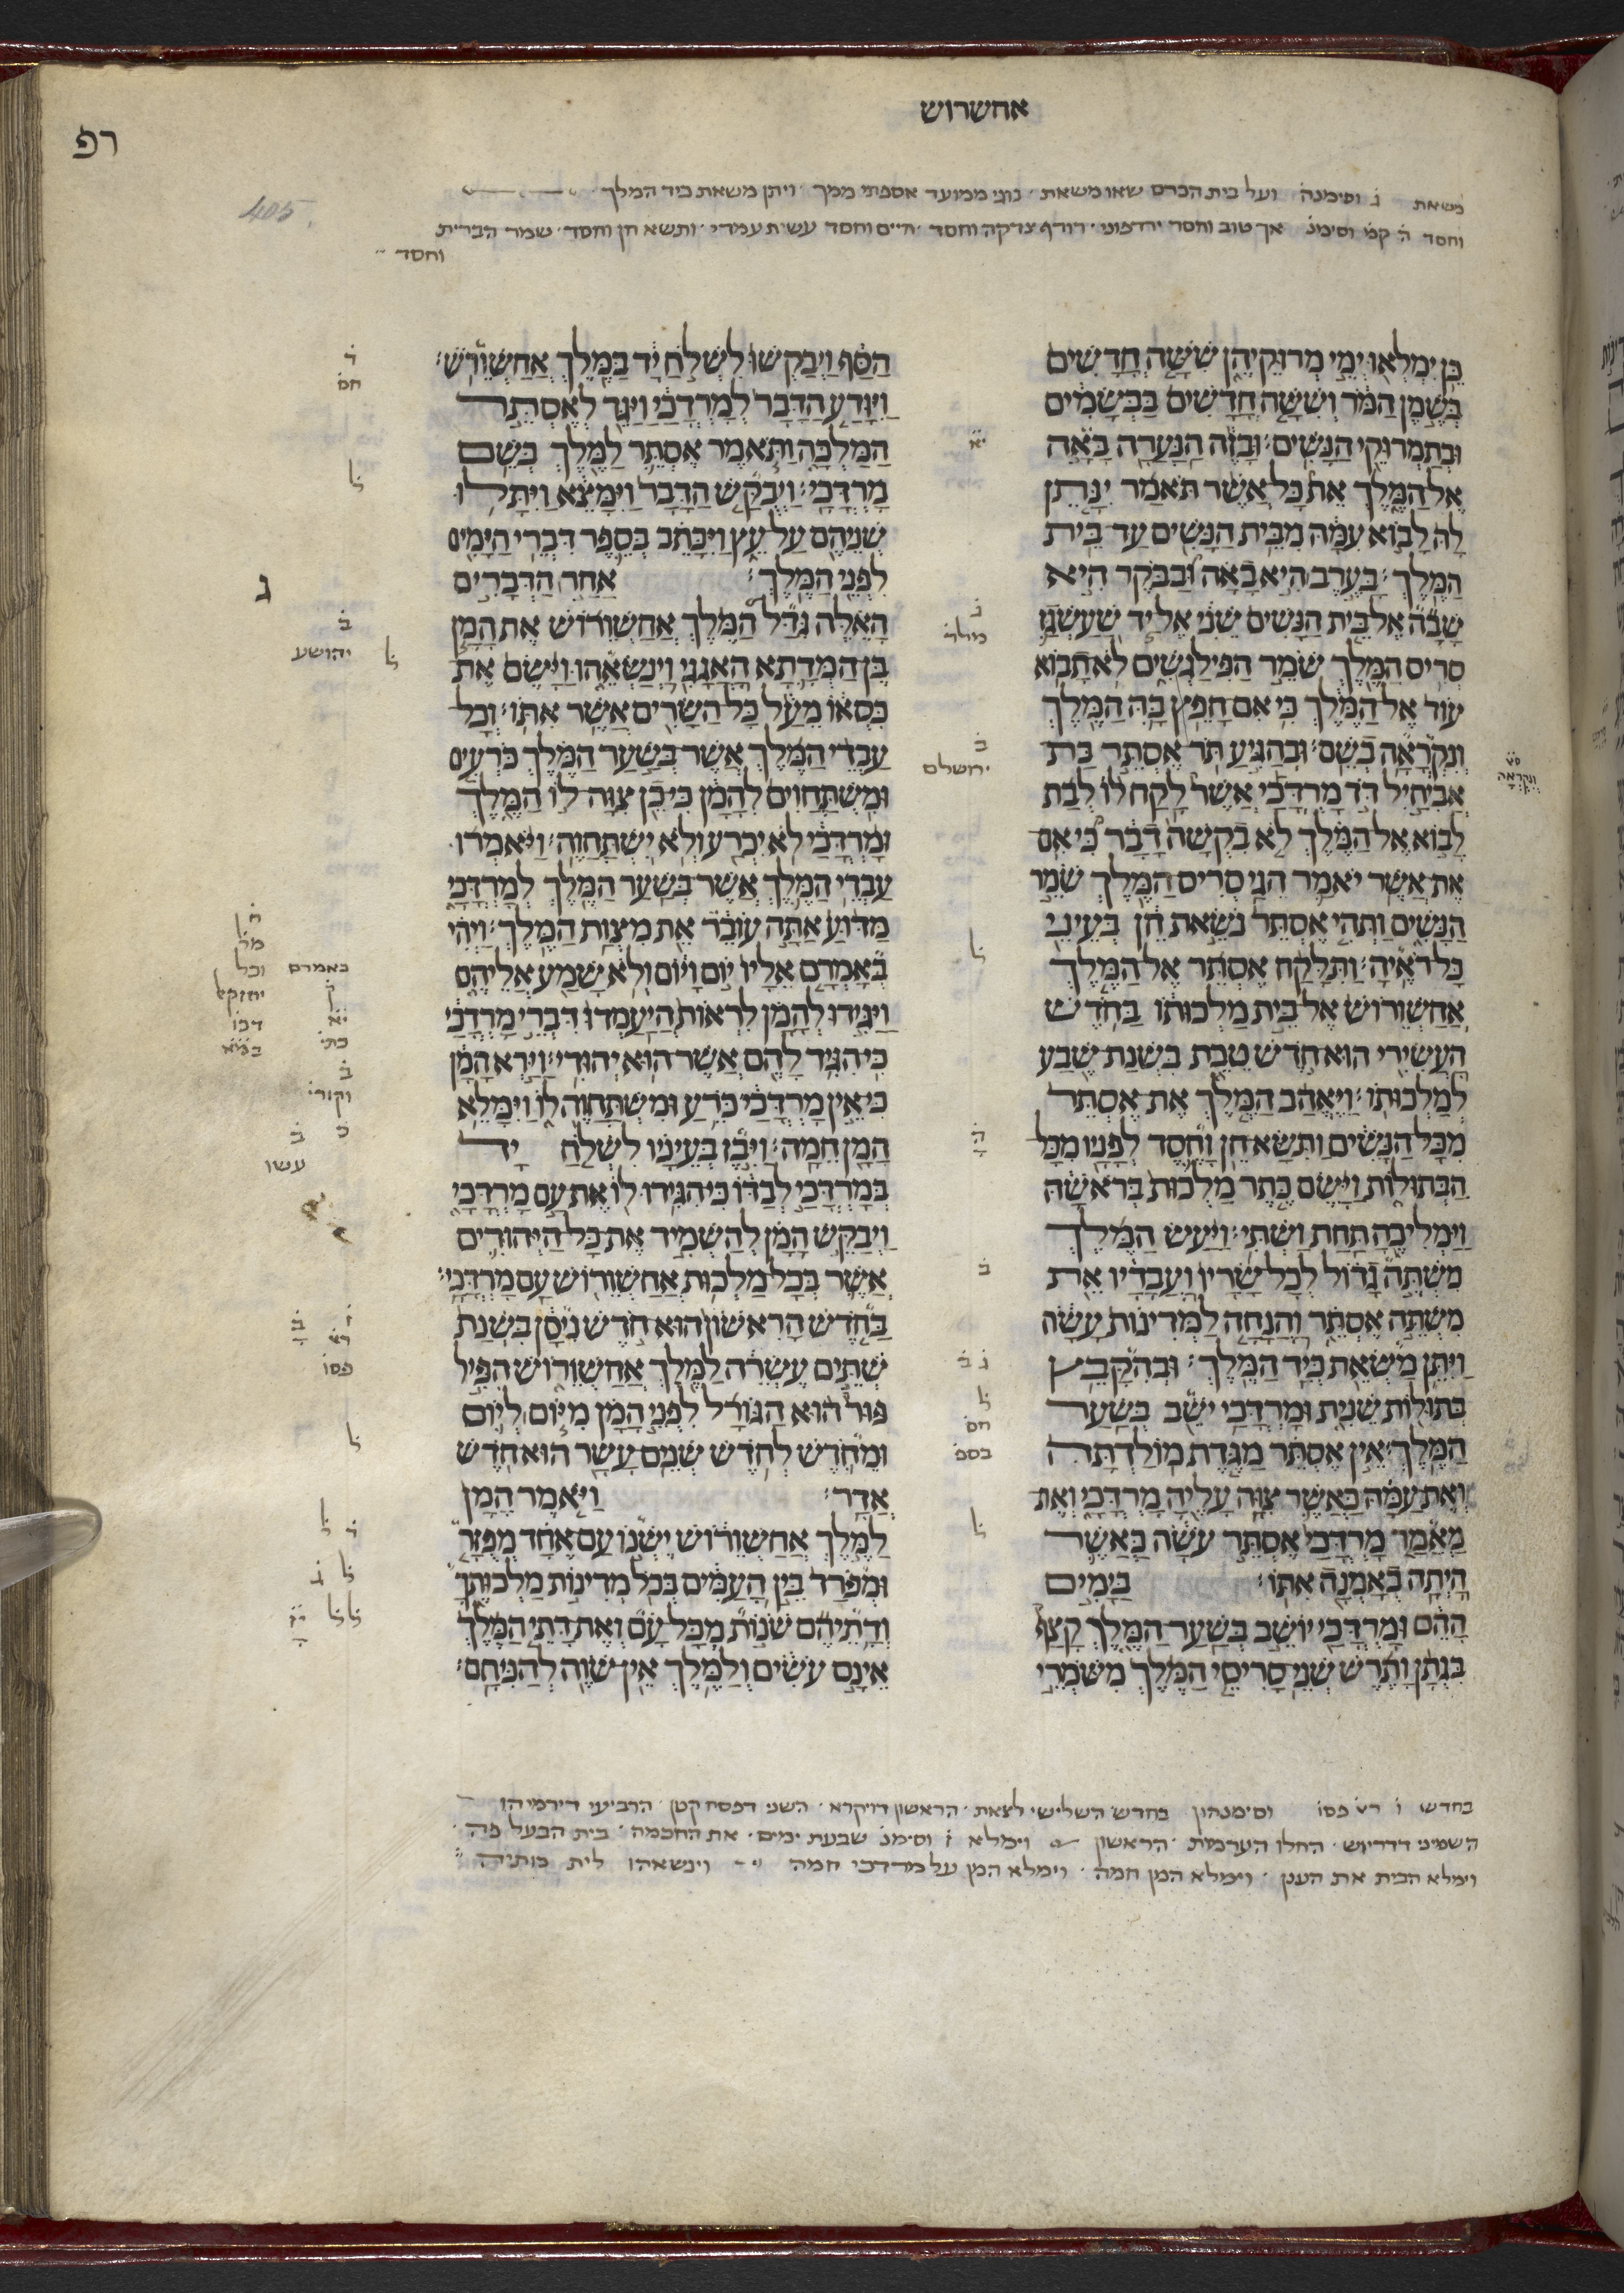 אחשרוש
רפ
405
משאת ג וסימנה ועל בית הכרם שאו משאת נוגי ממועד אספתי ממך ויתן משאת כיד המלך
וחסד ה קמ וסימנ אך טוב וחסד ירדפוני רודף צדקה וחסד חיים וחסד עשית עמדי ותשא חן וחסד שמר הברית
וחסד
כֵּן יִמְלְאוּ יְמֵי מְרוּקֵיהֶן שִׁשָּׁה חֳדָשִׁים
בְּשֶׁמֶן הַמֹּר וְשִׁשָּׁה חֳדָשִׁים בַּבְּשָׂמִים
וּבְתַמְרוּקֵי הַנָּשִׁים׃ וּבָזֶה הַנַּעֲרָה בָּאָה
אֶל הַמֶּלֶךְ אֵת כָּל אֲשֶׁר תֹּאמַר יִנָּתֵן
לָהּ לָבוֹא עִמָּהּ מִבֵּית הַנָּשִׁים עַד בֵּית
הַמֶּלֶךְ׃ בָּעֶרֶב הִיא בָאָה וּבַבֹּקֶר הִיא
שָׁבָה אֶל בֵּית הַנָּשִׁים שֵׁנִי אֶל יַד שַׁעַשְׁגַז
סְרִיס הַמֶּלֶךְ שֹׁמֵר הַפִּילַגְשִׁים לֹא תָבוֹא
עוֹד אֶל הַמֶּלֶךְ כִּי אִם חָפֵץ בָּהּ הַמֶּלֶךְ
וְנִקְרְאָה בְשֵׁם׃ וּבְהַגִּיעַ תֹּר אֶסְתֵּר בַּת
אֲבִיחַיִל דֹּד מָרְדֳּכַי אֲשֶׁר לָקַח לוֹ לְבַת
לָבוֹא אֶל הַמֶּלֶךְ לֹא בִקְשָׁה דָּבָר כִּי אִם
אֶת אֲשֶׁר יֹאמַר הֵגַי סְרִיס הַמֶּלֶךְ שֹׁמֵר
הַנָּשִׁים וַתְּהִי אֶסְתֵּר נֹשֵׂאת חֵן בְּעֵינֵי
כָּל רֹאֶיהָ׃ וַתִּלָּקַח אֶסְתֵּר אֶל הַמֶּלֶךְ
אֲחַשְׁוֵרוֹשׁ אֶל בֵּית מַלְכוּתוֹ בַּחֹדֶשׁ
הָעֲשִׂירִי הוּא חֹדֶשׁ טֵבֵת בִּשְׁנַת שֶׁבַע
לְמַלְכוּתוֹ׃ וַיֶּאֱהַב הַמֶּלֶךְ אֶת אֶסְתֵּר
מִכָּל הַנָּשִׁים וַתִּשָּׂא חֵן וָחֶסֶד לְפָנָיו מִכָּל
הַבְּתוּלוֹת וַיָּשֶׂם כֶּתֶר מַלְכוּת בְּרֹאשָׁהּ
וַיַּמְלִיכֶהָ תַּחַת וַשְׁתִּי׃ וַיַּעַשׂ הַמֶּלֶךְ
מִשְׁתֶּה גָדוֹל לְכָל שָׂרָיו וַעֲבָדָיו אֵת
מִשְׁתֵּה אֶסְתֵּר וַהֲנָחָה לַמְּדִינוֹת עָשָׂה
וַיִּתֵּן מַשְׂאֵת כְּיַד הַמֶּלֶךְ׃ וּבְהִקָּבֵץ
בְּתוּלוֹת שֵׁנִית וּמָרְדֳּכַי יֹשֵׁב בְּשַׁעַר
הַמֶּלֶךְ׃ אֵין אֶסְתֵּר מַגֶּדֶת מוֹלַדְתָּהּ
וְאֶת עַמָּהּ כַּאֲשֶׁר צִוָּה עָלֶיהָ מָרְדֳּכָי וְאֶת
מַאֲמַר מָרְדֳּכַי אֶסְתֵּר עֹשָׂה כַּאֲשֶׁר
הָיְתָה בְאָמְנָה אִתּוֹ׃ בַּיָּמִים
הָהֵם וּמָרְדֳּכַי יוֹשֵׁב בְּשַׁעַר הַמֶּלֶךְ קָצַף
בִּגְתָן וָתֶרֶשׁ שְׁנֵי סָרִיסֵי הַמֶּלֶךְ מִשֹּׁמְרֵי
הַסַּף וַיְבַקְשׁוּ לִשְׁלֹחַ יָד בַּמֶּלֶךְ אֲחַשְׁוֵרֹשׁ׃
וַיִּוָּדַע הַדָּבָר לְמָרְדֳּכַי וַיַּגֵּד לְאֶסְתֵּר
הַמַּלְכָּה וַתֹּאמֶר אֶסְתֵּר לַמֶּלֶךְ בְּשֵׁם
מָרְדֳּכָי׃ וַיְבֻקַּשׁ הַדָּבָר וַיִּמָּצֵא וַיִּתָּלוּ
שְׁנֵיהֶם עַל עֵץ וַיִּכָּתֵב בְּסֵפֶר דִּבְרֵי הַיָּמִים
לִפְנֵי הַמֶּלֶךְ׃ אַחַר הַדְּבָרִים
הָאֵלֶּה גִּדַּל הַמֶּלֶךְ אֲחַשְׁוֵרוֹשׁ אֶת הָמָן
בֶּן הַמְּדָתָא הָאֲגָגִי וַיְנַשְּׂאֵהוּ וַיָּשֶׂם אֶת
כִּסְאוֹ מֵעַל כָּל הַשָּׂרִים אֲשֶׁר אִתּוֹ׃ וְכָל
עַבְדֵי הַמֶּלֶךְ אֲשֶׁר בְּשַׁעַר הַמֶּלֶךְ כֹּרְעִים
וּמִשְׁתַּחֲוִים לְהָמָן כִּי כֵן צִוָּה לוֹ הַמֶּלֶךְ
וּמָרְדֳּכַי לֹא יִכְרַע וְלֹא יִשְׁתַּחֲוֶה׃ וַיֹּאמְרוּ
עַבְדֵי הַמֶּלֶךְ אֲשֶׁר בְּשַׁעַר הַמֶּלֶךְ לְמָרְדֳּכָי
מַדּוּעַ אַתָּה עוֹבֵר אֵת מִצְוַת הַמֶּלֶךְ׃ וַיְהִי
בְּאָמְרָם אֵלָיו יוֹם וָיוֹם וְלֹא שָׁמַע אֲלֵיהֶם
וַיַּגִּידוּ לְהָמָן לִרְאוֹת הֲיַעַמְדוּ דִּבְרֵי מָרְדֳּכַי
כִּי הִגִּיד לָהֶם אֲשֶׁר הוּא יְהוּדִי׃ וַיַּרְא הָמָן
כִּי אֵין מָרְדֳּכַי כֹּרֵעַ וּמִשְׁתַּחֲוֶה לוֹ וַיִּמָּלֵא
הָמָן חֵמָה׃ וַיִּבֶז בְּעֵינָיו לִשְׁלֹחַ יָד
בְּמָרְדֳּכַי לְבַדּוֹ כִּי הִגִּידוּ לוֹ אֶת עַם מָרְדֳּכָי
וַיְבַקֵּשׁ הָמָן לְהַשְׁמִיד אֶת כָּל הַיְּהוּדִים
אֲשֶׁר בְּכָל מַלְכוּת אֲחַשְׁוֵרוֹשׁ עַם מָרְדֳּכָי׃
בַּחֹדֶשׁ הָרִאשׁוֹן הוּא חֹדֶשׁ נִיסָן בִּשְׁנַת
שְׁתֵּים עֶשְׂרֵה לַמֶּלֶךְ אֲחַשְׁוֵרוֹשׁ הִפִּיל
פּוּר הוּא הַגּוֹרָל לִפְנֵי הָמָן מִיּוֹם לְיוֹם
וּמֵחֹדֶשׁ לְחֹדֶשׁ שְׁנֵים עָשָׂר הוּא חֹדֶשׁ
אֲדָר׃ וַיֹּאמֶר הָמָן
לַמֶּלֶךְ אֲחַשְׁוֵרוֹשׁ יֶשְׁנוֹ עַם אֶחָד מְפֻזָּר
וּמְפֹרָד בֵּין הָעַמִּים בְּכֹל מְדִינוֹת מַלְכוּתֶךָ
וְדָתֵיהֶם שֹׁנוֹת מִכָּל עָם וְאֶת דָּתֵי הַמֶּלֶךְ
אֵינָם עֹשִׂים וְלַמֶּלֶךְ אֵין שֹׁוֶה לְהַנִּיחָם׃
ונקראה
יא
ירושלם
חס
ג
יהושע
באמרם
וכל
יחזקל
עשו
פסו
חס
בחדש ו רא פסו וסימנהון בחדש השלישי לצאת הראשון דויקרא השני דפסח קטן הרביעי דירמיהו
השמיני דדריוש החלו הערמות הראשון וימלא ז וסימנ שבעת ימים את החכמה בית הבעל פה
וימלא הבית את הענן וימלא המן חמה וימלא המן על מרדכי חמה וינשאהו לית כותיה